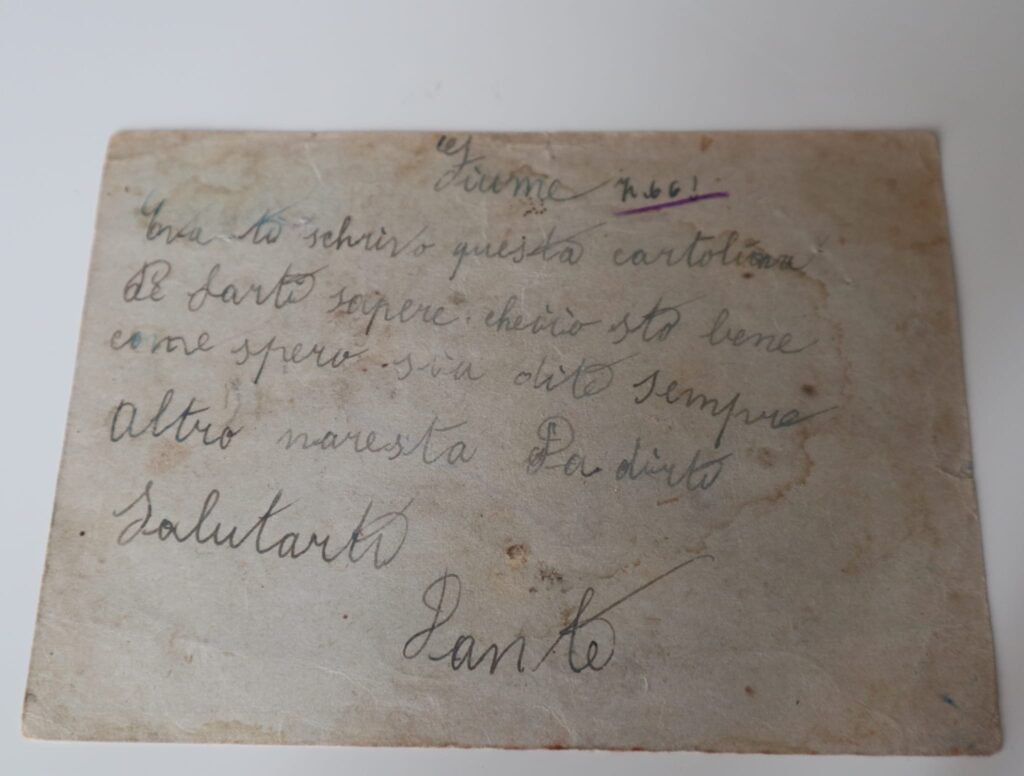 Fiume n. 66!
Eva ti schrivo questa cartolina
Pe farti sapere. cheiio sto bene
come spero. sia dite sempre
altro naresta Pa dirti
Salutarti
Dante